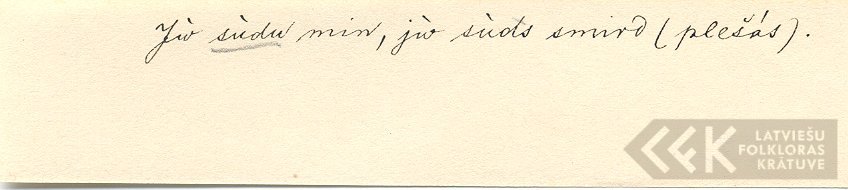 Jùo sùdu min, jùo sùds smird (plešás).
LATVIEŠU
FOLKLORAS
KRĀTUVE